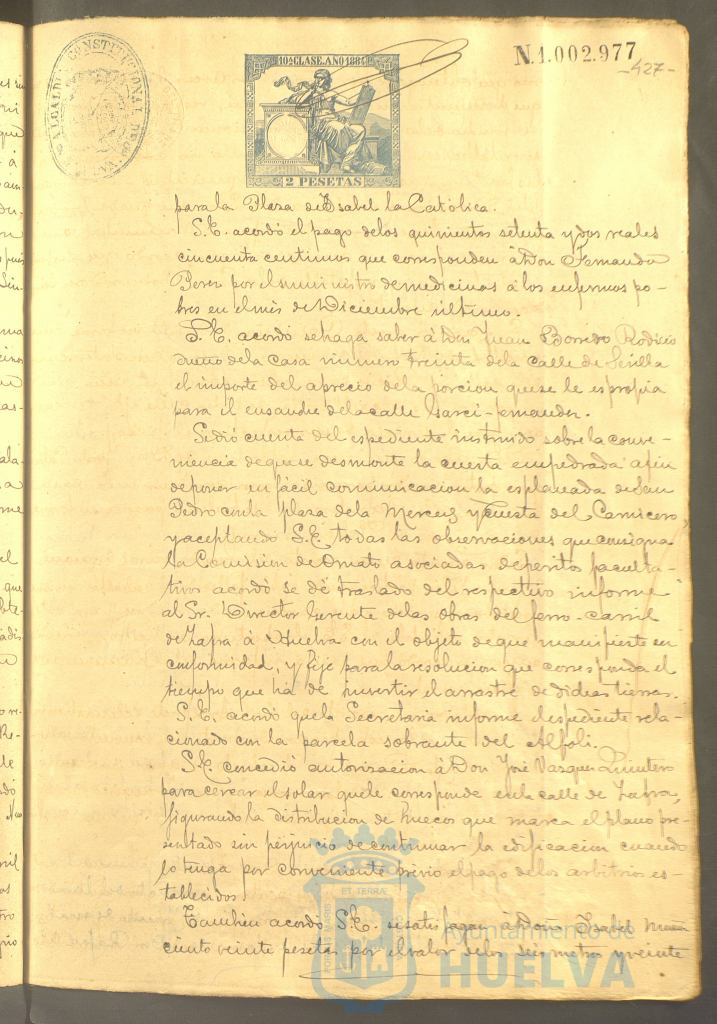 ALCALDIA CONSTITUCIONAL DE HUELVA
10ª CLASE. AÑO 1884
N.1.002.977
-427-
2 PESETAS
para la Plaza de Isabel la Católica.
S.E. acordó el pago de los quinientos setenta y dos reales
cincuenta centimos que corresponden á Don Fernando
Perez por el suministro de medicinas á los enfermos po-
bres en el mes de Diciembre último.
S.E. acordó se haga saber á Don Juan Borrero Rodicio
dueño de la casa número treinta de la calle de Sevilla
el importe del aprecio de la porcion que se le espropia
para el ensanche de la calle Garci-Fernandez.
Se dió cuenta del espediente instruido sobre la conve-
niencia de que se desmonte la cuesta empedrada a fin
de poner en fácil comunicacion la esplanada de San
Pedro con la plaza de la Merced y Cuesta del Carnicero,
y aceptando S.E. todas las observaciones que consigna
la Comision de Ornato asociadas de peritos faculta-
tivos acordó se dé traslado del respectivo informe
al Sr. Director Gerente de las obras del ferro-carril
de Zafra á Huelva con el objeto de que manifieste su
conformidad, y fije para la resolucion que corresponda el
tiempo que há de invertir el arrastre de dichas tierras.
S.E. acordó que la Secretaria informe el espediente rela-
cionado con la parcela sobrante del Alfolí.
S.E. concedió autorizacion á Don José Vazquez Quintero
para cercar el solar que le corresponde en la calle de Zafra,
figurando la distribucion de huecos que marca el plano pre-
sentado sin perjuicio de continuar la edificacion cuando
lo tenga por conveniente previo el pago de los arbitrios es-
tablecidos.
Tambien acordó S.E. se satisfagan á Doña Isabel
ciento veinte pesetas por el valor de los seis metros y veinte
ET TERRÆ
PORTUS MARIS
Ayuntamiento de
HUELVA